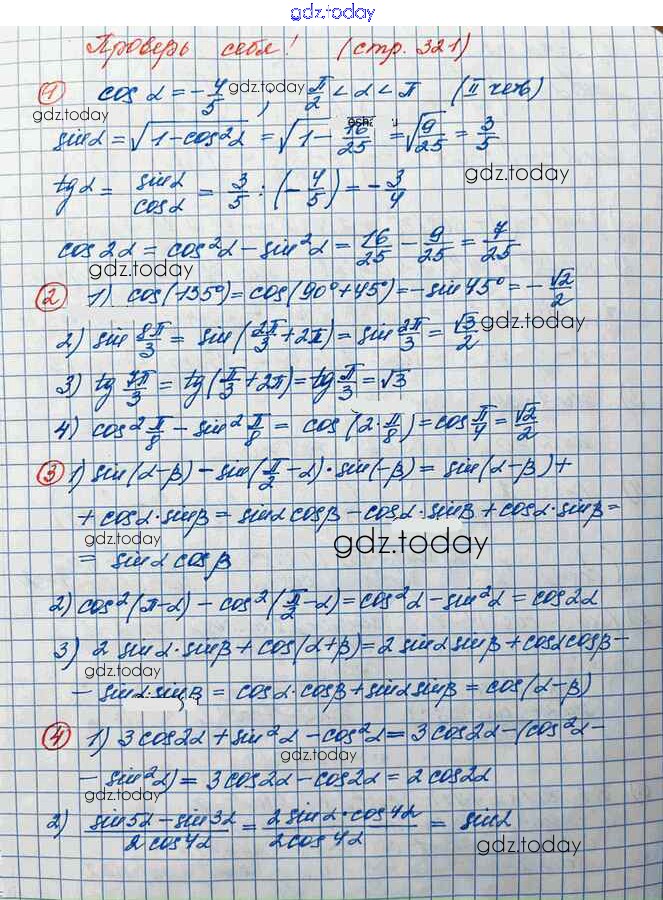 gdz.today
Проверь себя! (стр. 321)
1 cos α = -4/5, π/2 < α < π (II четв)
gdz.today
gdz.today
sin α = √(1-cos²α) = √(1-16/25) = √(9/25) = 3/5
gdz.today
tg α = sin α/cos α = 3/5 : (-4/5) = -3/4
cos 2α = cos²α - sin²α = 16/25 - 9/25 = 7/25
gdz.today
2 1) cos(135°) = cos(90°+45°) = -sin 45° = -√2/2
gdz.today
2) sin 8π/3 = sin(2π/3 + 2π) = sin 2π/3 = √3/2
3) tg 7π/3 = tg(π/3 + 2π) = tg π/3 = √3
4) cos² π/8 - sin² π/8 = cos(2·π/8) = cos π/4 = √2/2
3 1) sin(α-β) - sin(π/2 - α)·sin(-β) = sin(α-β) +
+ cos α·sin β = sin α cos β - cos α·sin β + cos α·sin β =
gdz.today
gdz.today
= sin α cos β
2) cos²(π-α) - cos²(π/2 - α) = cos²α - sin²α = cos 2α
3) 2 sin α·sin β + cos(α+β) = 2 sin α sin β + cos α cos β -
gdz.today
- sin α·sin β = cos α·cos β + sin α sin β = cos(α-β)
4 1) 3 cos 2α + sin²α - cos²α = 3 cos 2α - (cos²α -
gdz.today
- sin²α) = 3 cos 2α - cos 2α = 2 cos 2α
gdz.today
2) (sin 5α - sin 3α)/(2 cos 4α) = (2 sin α·cos 4α)/(2 cos 4α) = sin α
gdz.today